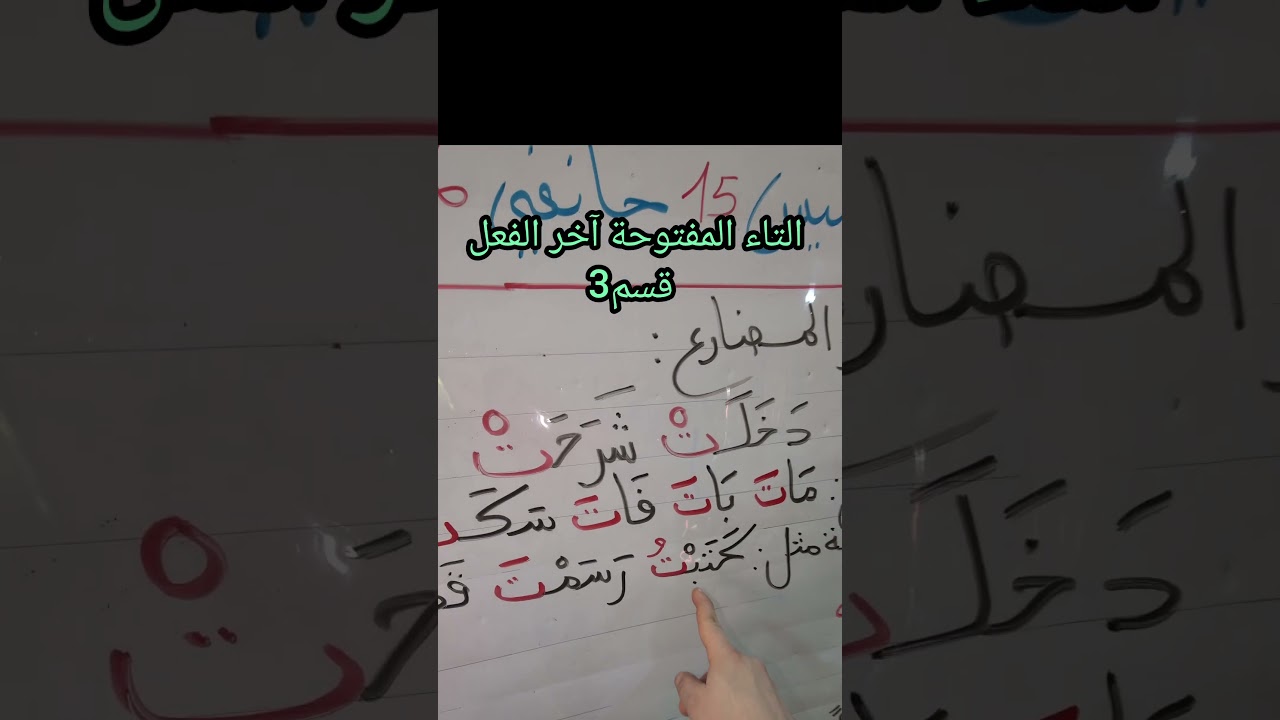 15 جانفي
التاء المفتوحة آخر الفعل
قسم3
المضارع :
دَخَلَتْ شَرَحَتْ
: مَاتَ بَاتَ فَاتَ
مثل : كَتَبْتُ رَسَمْتَ